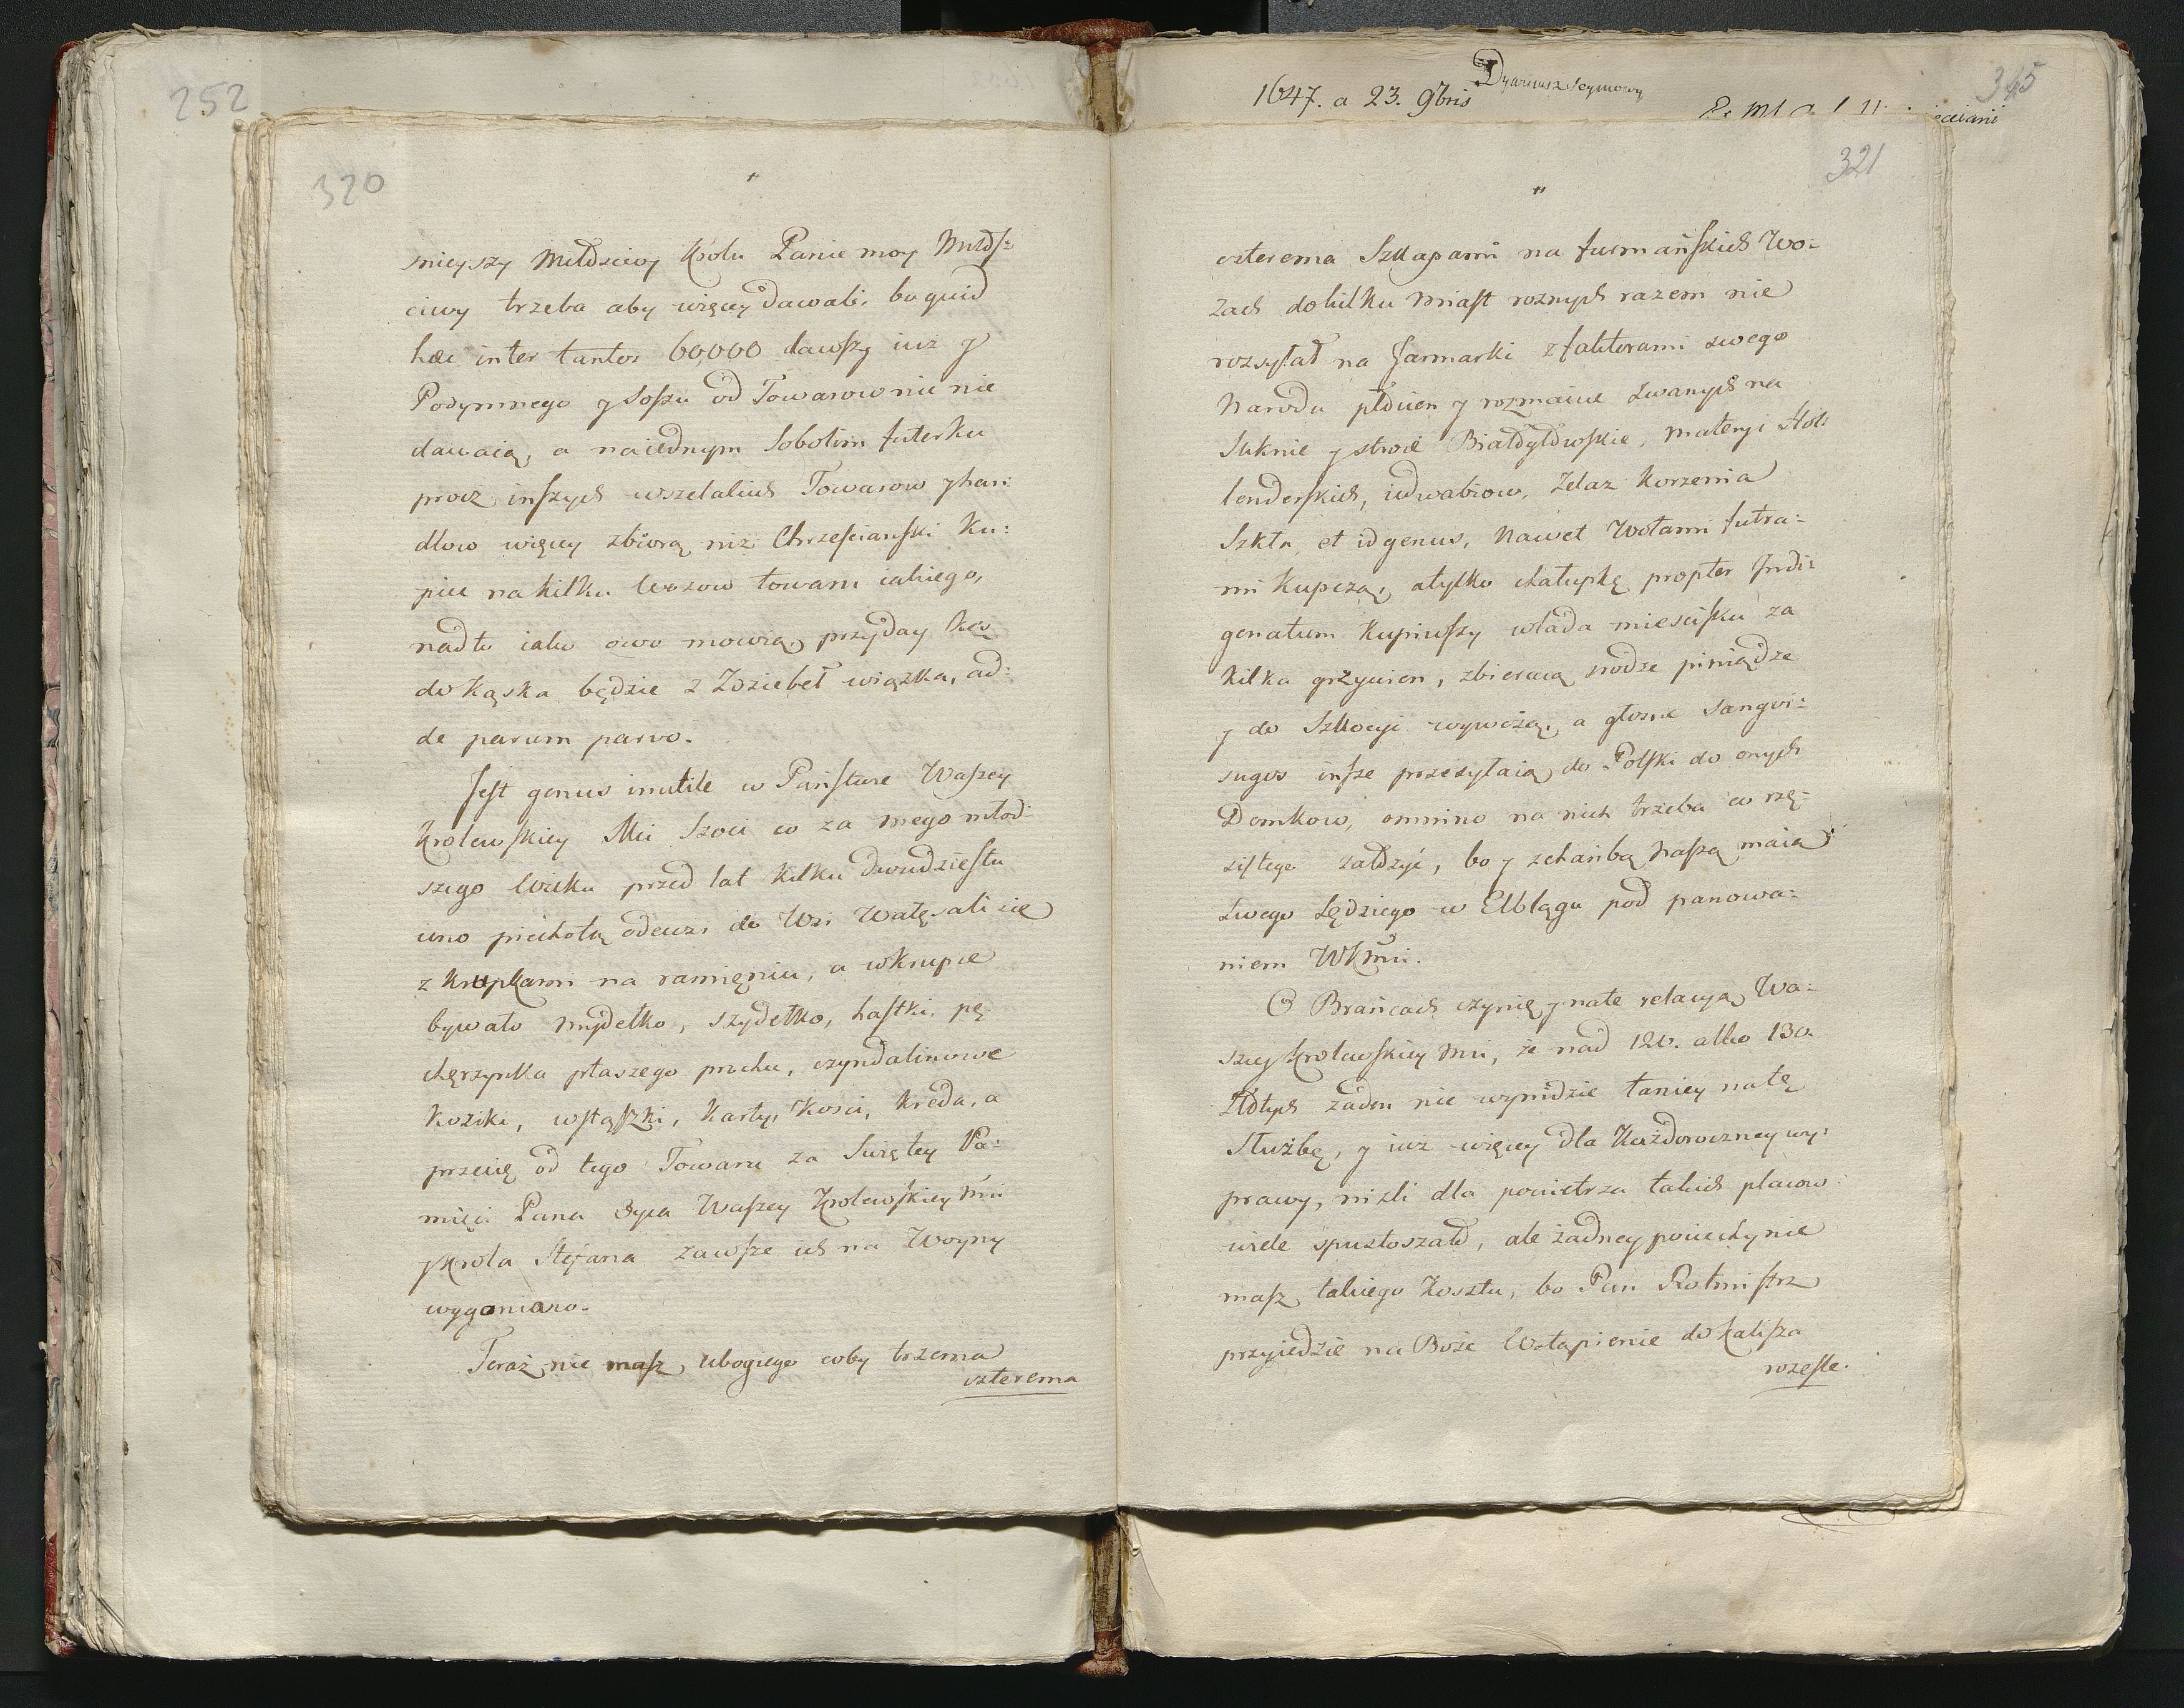 252
320
"
snieyszy Miłosciwy Krolu Panie moy Miłoś:
ciwy trzeba aby więcey dawali, bo quid
hæc inter tantos 60,000 dawszy iuż y
Podymnego y Soszu od Towarow nic nie
dawaią, a na iednym Sobolim futerku
procz inszych wszelakich Towarow y han:
dlow więcey zbiorą niż Chrzesciański Ku:
piec na kilku Wozow towaru iakiego,
nadto iako owo mowią, przyday kęs
do kąska będzie z Zdziebeł wiązka, ad:
de parum parvo.
Jest genus inutile w Państwie Waszey
Krolewskiey Mci Szoci co za mego młod:
szego Wieku przed lat kilku dwudziestu
ieno piechotą odewsi do Wsi Wałęsali się
z krupkami na ramięniu, a w krupie
bywało mydełko, szydełko, haftki, pę
chęrzynka ptaszego prochu, czyndalinowe
Koziki, wstąszki, karty, Kosci, kreda, a
przecię od tego Towaru za Swiętey Pa:
mięci Pana Oyca Waszey Krolewskiey Mci
y Krola Stefana zawsze ich na Woyny
wyganiano.
Teraz nie masz, ubogiego coby trzema
czterema
1647. a 23. 9bris
Dyariusz Seymowy
345
321
"
czterema Szkapami na furmańskich Wo:
zach do kilku Miast roznych razem nie
rozsyłał na Jarmarki z faktorami swego
Narodu płocien y rozmaicie zwanych na
Suknie y stroie Białogłowskie, materyi Hol:
lenderskich, iedwabiow, Zelaz Korzenia
Szkła, et id genus, Nawet Wołami futra:
mi Kupczą, a tylko chałupkę propter Indi:
genatum Kupiwszy w lada miescisku za
kilka grzywien, zbieraią srodze piniądze
y do Szkocyi wywożą, a głosne Sangvi:
sugos insze przesyłaią do Polski do onych
Domkow, omnino na nich trzeba co rzę:
sistego załozyć, bo y z chańbą naszą maią
swego Sędziego w Elblągu pod panowa:
niem WKMci.
O Brańcach czynię y nate relacyą Wa:
szey Krolewskiey Mci, że nad 120. albo 130.
Złotych żaden nie wynidzie taniey natę
Służbę, y iuz więcey dla Każdoroczney wy:
prawy, nizli dla powietrza takich placow
wiele spustoszało, ale żadney pociechy nie
masz takiego kosztu, bo Pan Rotmistrz
przyiedzie na Boże Wstąpienie do Kalisza
rozesle.